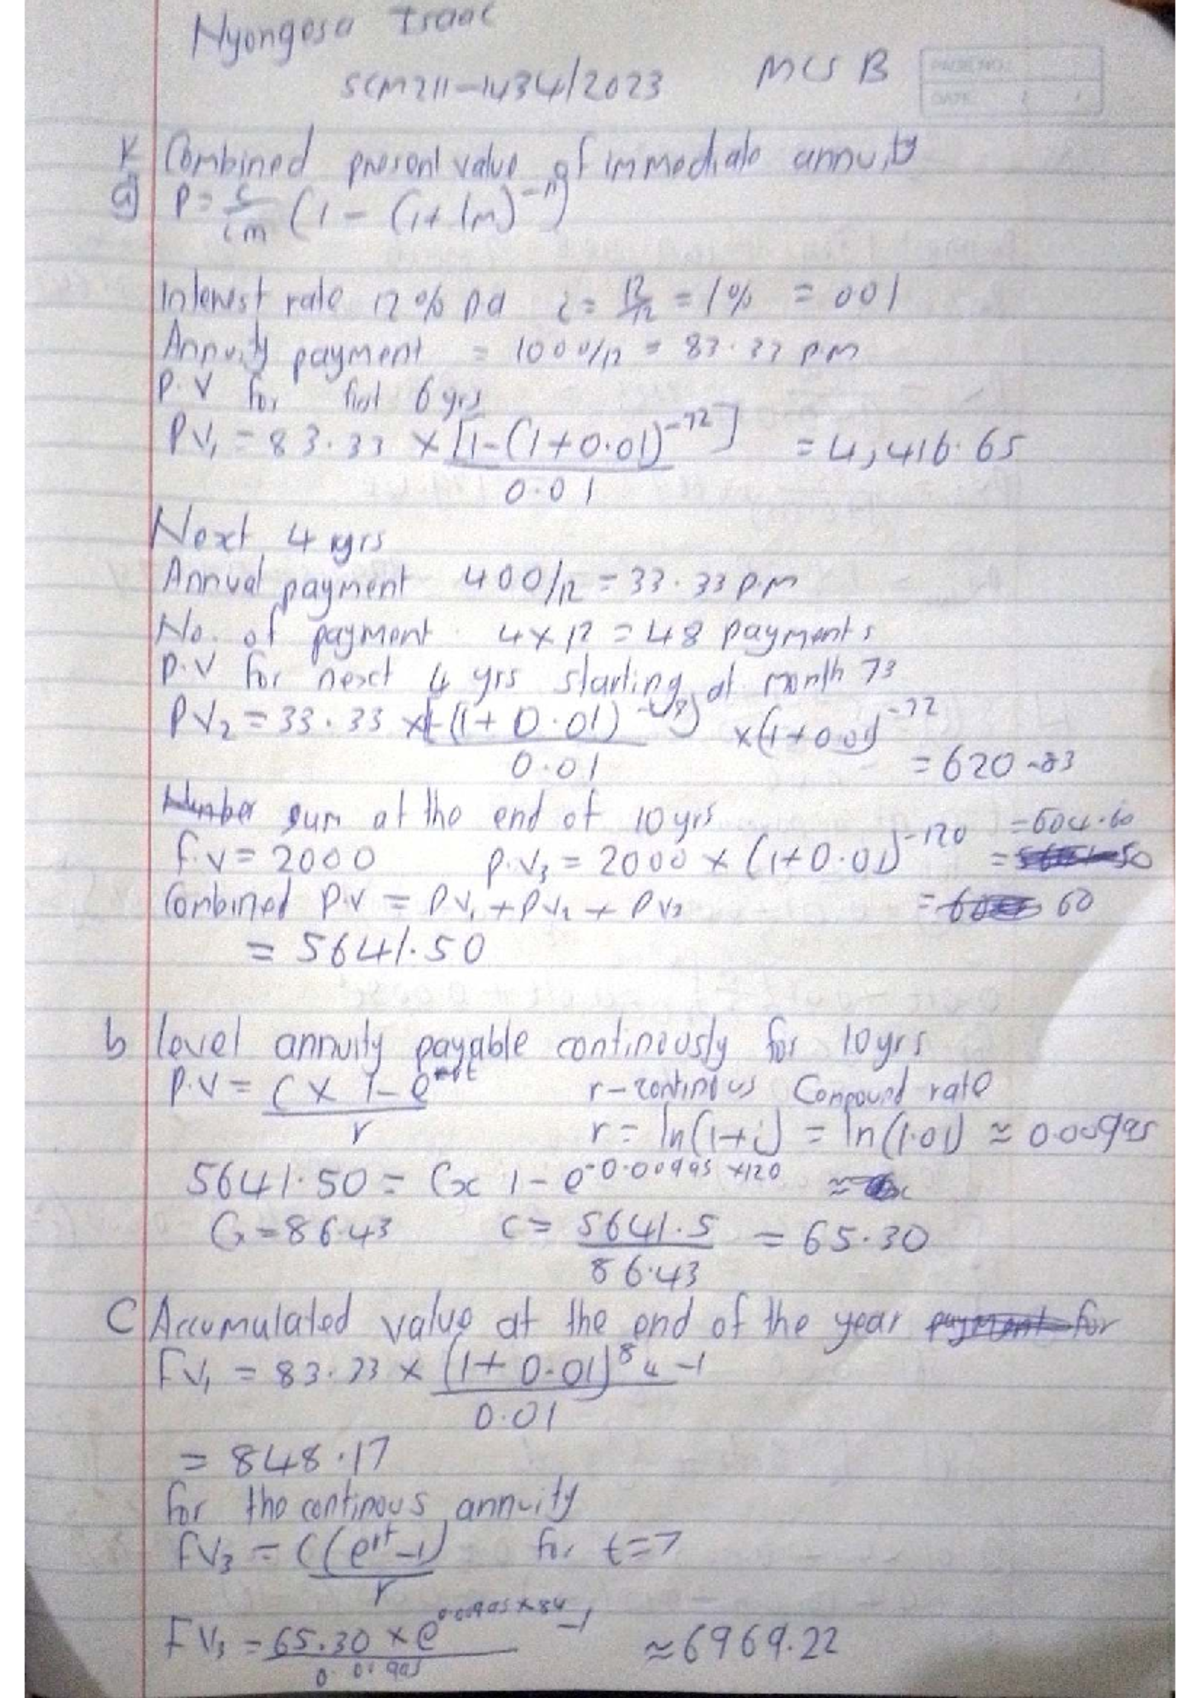 Nyongesa Isaac
SCM211-1434/2023 MCS B
PAGE NO.:
DATE: / /
Combined present value of immediate annuity
a) P = c/im (1 - (1+im)^-n)
Interest rate 12% pa i = 12/12 = 1% = 001
Annuity payment = 1000/12 = 83.33 pm
P.V for first 6 yrs
PV₁ = 83.33 × [1-(1+0.01)^-72] / 0.01 = 4,416.65
Next 4 yrs
Annual payment 400/12 = 33.33 p.m
No. of payment. 4×12 = 48 payments
P.V for next 4 yrs starting at month 73
PV₂ = 33.33 × [1-(1+0.01)^-48] / 0.01 × (1+0.01)^-72 = 620.83
sum at the end of 10yrs
F.V = 2000 P.V₃ = 2000 × (1+0.01)^-120 = 604.60
Combined P.V = PV₁ + PV₂ + PV₃
= 5641.50
b level annuity payable continously for 10yrs
P.V = C × 1-e^-rt / r r - continous Compound rate
r = ln(1+i) = ln(1.01) ≈ 0.00995
5641.50 = C x 1-e^-0.00995 ×120
C = 86.43 C = 5641.5 / 86.43 = 65.30
C Accumulated value at the end of the year for
FV₁ = 83.33 × (1+0.01)^84 -1 / 0.01
= 848.17
for the continous annuity
FV₃ = C(e^rt -1) / r for t=7
FV₃ = 65.30 × e^0.00995×84 -1 / 0.00995 ≈ 6969.22